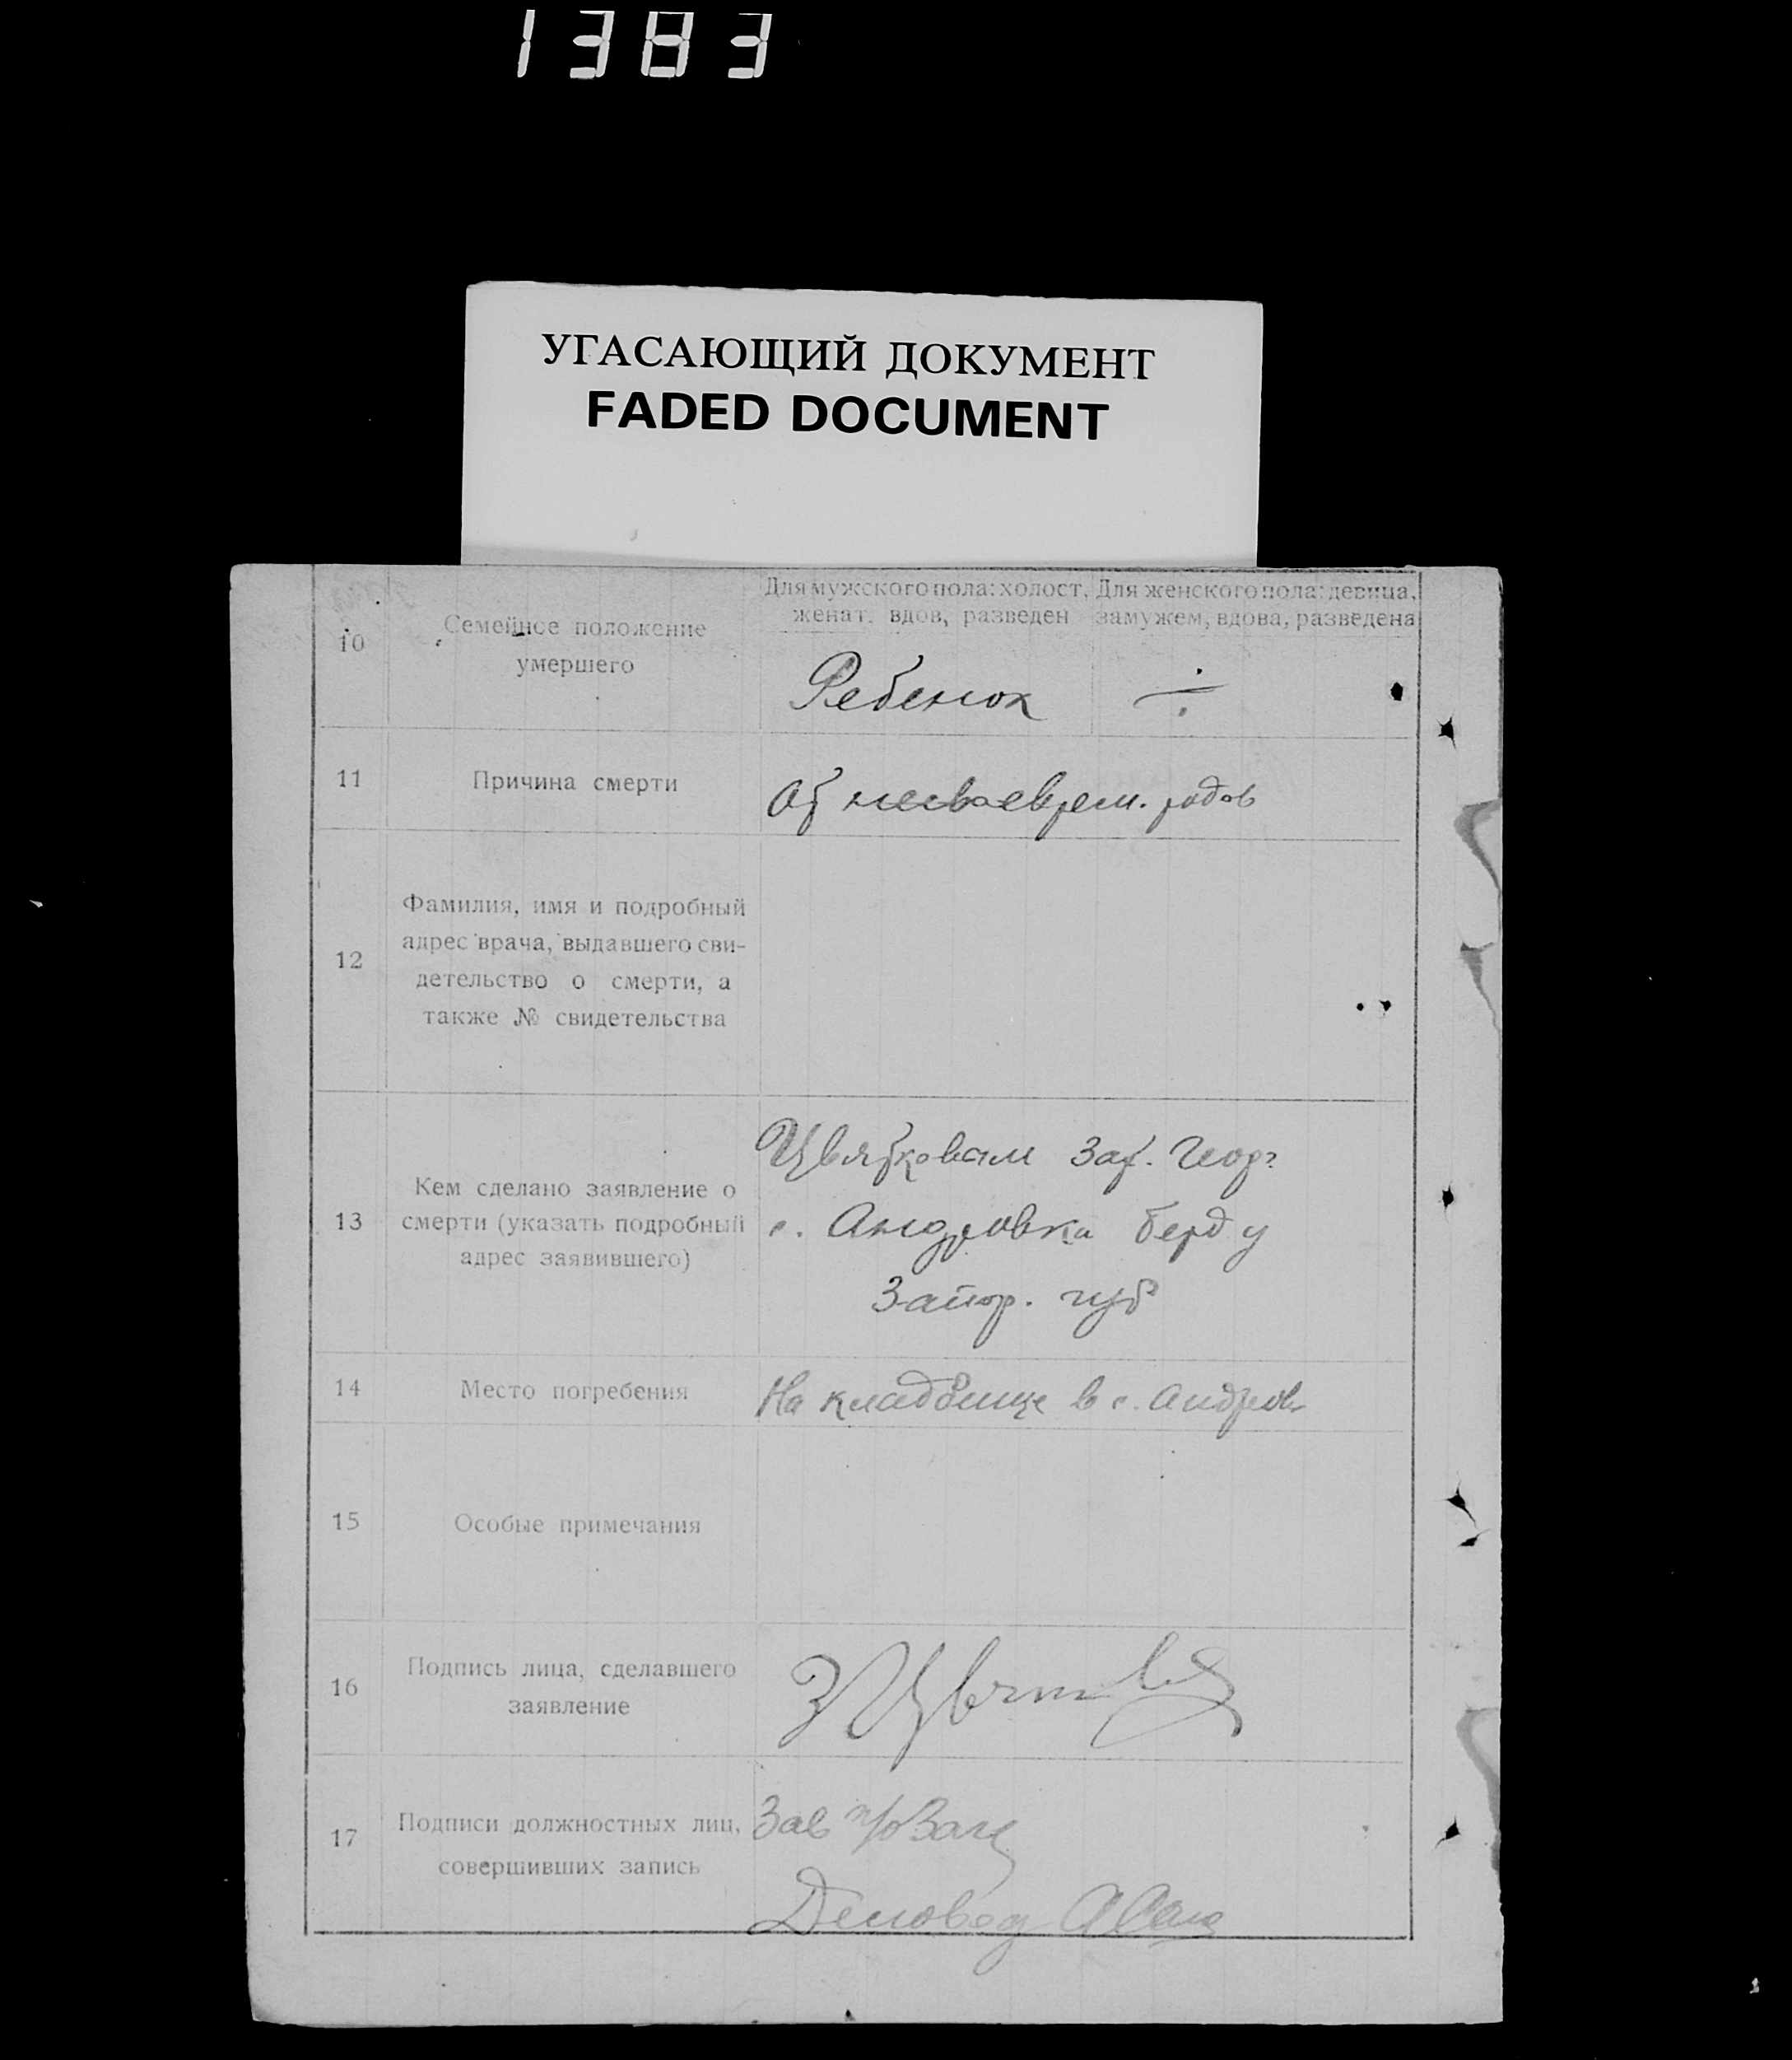 1383
УГАСАЮЩИЙ ДОКУМЕНТ
FADED DOCUMENT
10
Семейное положение
умершего
Для мужского пола: холост,
женат, вдов, разведен
Для женского пола: девица,
замужем, вдова, разведена
Ребенок
÷
11
Причина смерти
От несвоеврем. родов
12
Фамилия, имя и подробный
адрес врача, выдавшего сви-
детельство о смерти, а
также № свидетельства
13
Кем сделано заявление о
смерти (указать подробный
адрес заявившего)
Цвятковым Зах. Геор
с. Андровка Берд у
Запор. губ
14
Место погребения
На кладбище в с. Андров
15
Особые примечания
16
Подпись лица, сделавшего
заявление
17
Подписи должностных лиц,
совершивших запись
Зав
Деловод